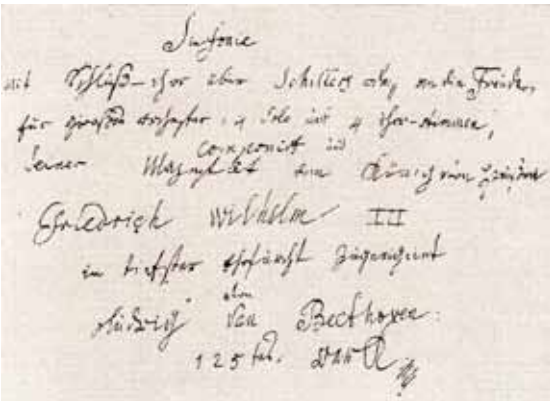 Sinfonie
mit Schluß-chor über Schillers ode, an die Freude,
für großes orchester, 4 Solo und 4 chor-stimmen,
componirt und
Seiner Majestät dem König von Preußen
Friedrich Wilhelm III
in tiefster Ehrfurcht zugeeignet
von
Ludwig van Beethoven.
125tes. Werk